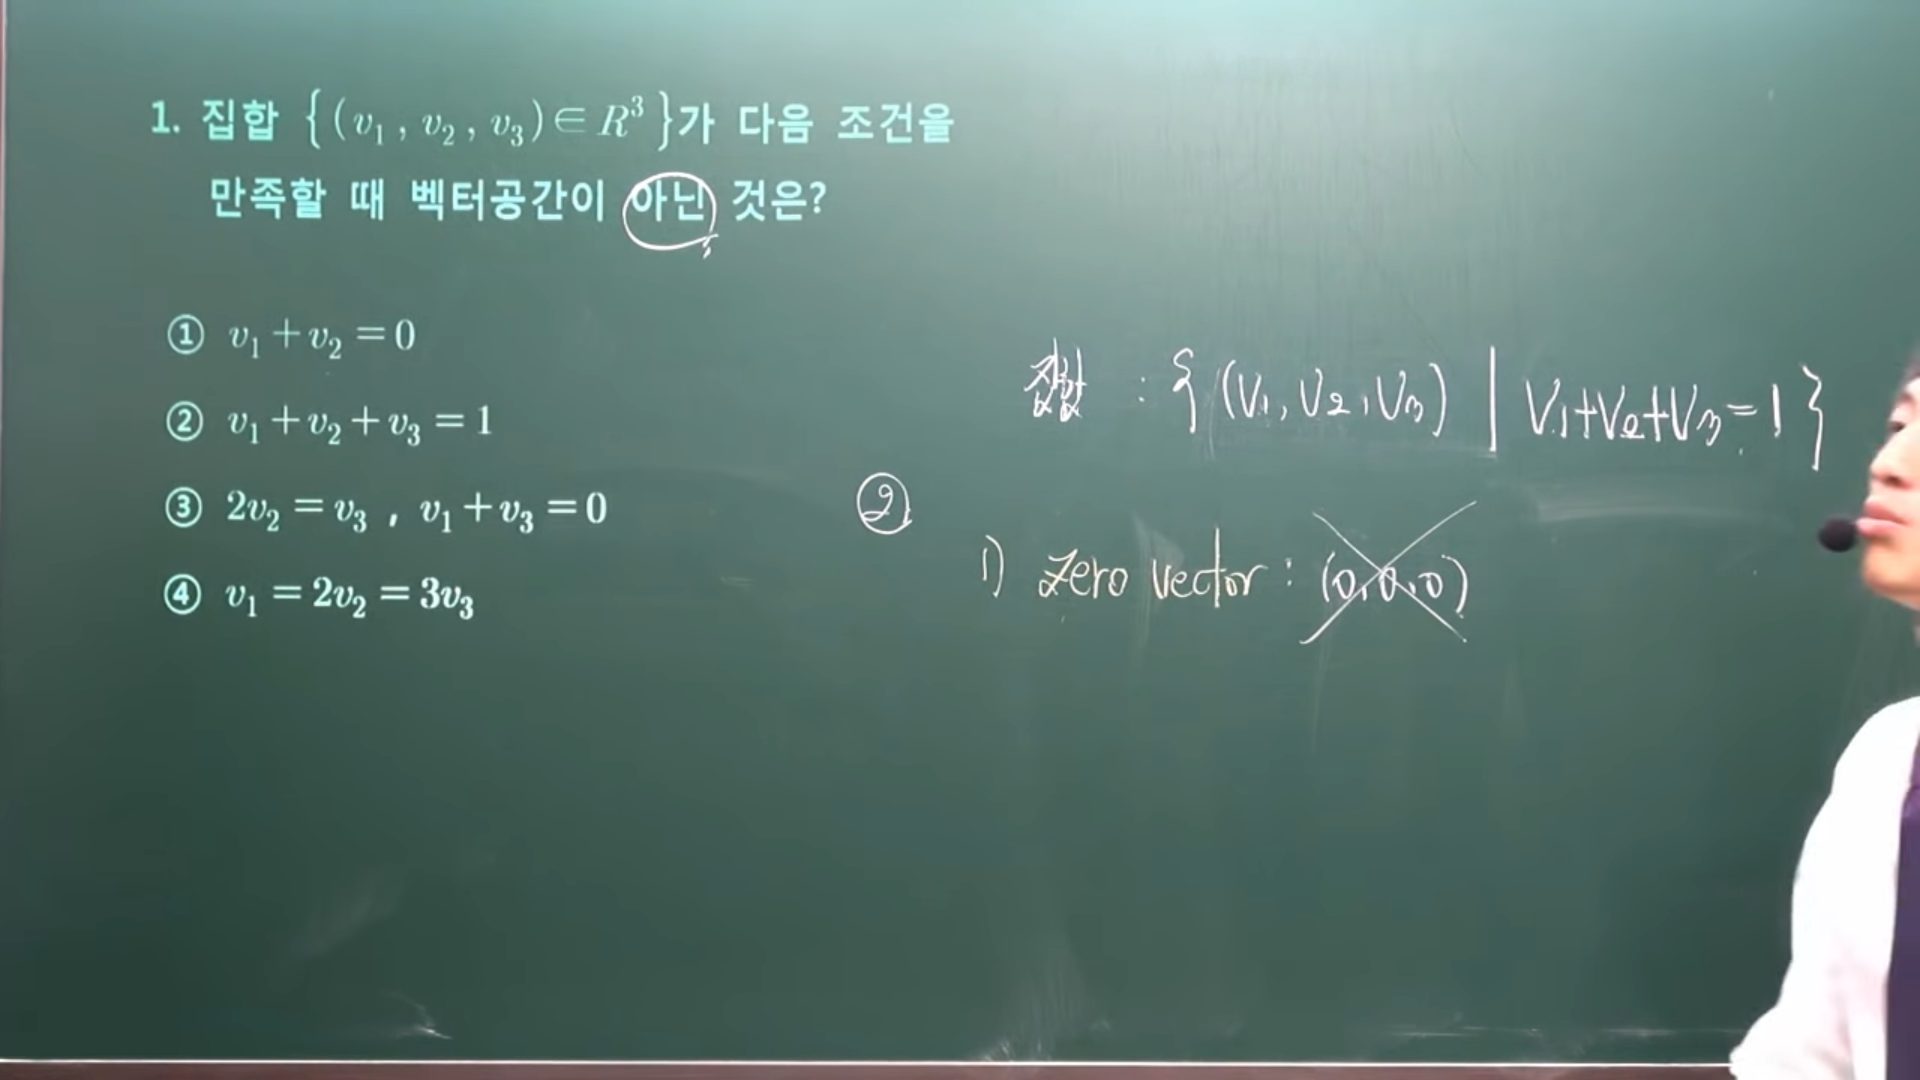 1. 집합 {(v₁, v₂, v₃)∈R³}가 다음 조건을
만족할 때 벡터공간이 아닌 것은?
① v₁+v₂=0
② v₁+v₂+v₃=1
③ 2v₂=v₃, v₁+v₃=0
④ v₁=2v₂=3v₃
집합 : {(V₁, V₂, V₃) | V₁+V₂+V₃=1}
②
1) Zero vector : (0, 0, 0)